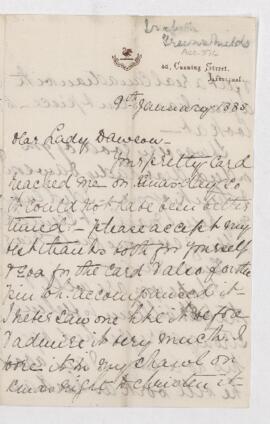 Canning Street,
Liverpool.
9th January 1885
Dear Lady Dawson -
Your pretty card
reached me on
it could not have been better
timed - please accept my
best thanks both for yourself
& Eva for the card & also for the
pin wh. accompanied it -
I never saw one like it before
& admire it very much. I
wore it in my shawl on
night to christen it -